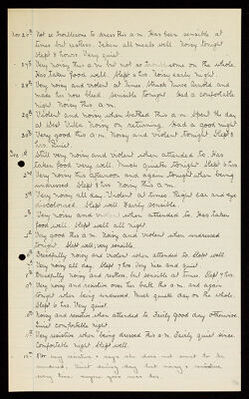 Nov 26th Not so troublesome to dress this a.m. Has been sensible at
times but restless. Taken all meals well. Noisy tonight
slept 5 hours. Very quiet.
27th Very noisy this a.m. but not so troublesome on the whole.
Has taken food well. Slept 6 hrs. Noisy early night.
28th Violent and restless when at times. Struck Nurse Arnold and
made her nose bleed. Sensible tonight. Had a comfortable
night. Noisy this a.m.
29th Violent and noisy when bathed this a.m. Spent the day
at West Villa. Noisy on returning. Had a good night
30th Very good this a.m. Noisy and violent tonight. Slept 5
hrs. Quiet.
Dec 1st Still very noisy and violent when attended to. Has
taken food very well. Much quieter tonight. Slept 6 hrs
2nd Very noisy this afternoon and again tonight when being
undressed. Slept 5 hrs. Noisy this a.m.
3rd Very noisy all day. Violent at times. Right ear and eye
discoloured. Slept well. Fairly sensible.
4th Very noisy and violent when attended to. Has taken
food well. Slept well all night
5th Very good this a.m. Noisy and violent when undressed
tonight. Slept well, very sensible
6th Dreadfully noisy and violent when attended to. Slept well
7th Very noisy all day. Slept 7 hrs. Very wee and quiet
8th Dreadfully noisy and restless, but sensible at times. Slept 7 hrs.
9th Very noisy and resistive over her bath this a.m. and again
tonight when being undressed. Most quiet day on the whole.
Slept 6 hrs. Very quiet.
10th Noisy and resistive when attended to. Fairly good day otherwise
Quiet comfortable night.
11th Very resistive when being dressed this a.m. Fairly quiet since.
Comfortable night. Slept well.
12th very resistive & says she does not want to be
undressed. Quiet during day but noisy & resistive